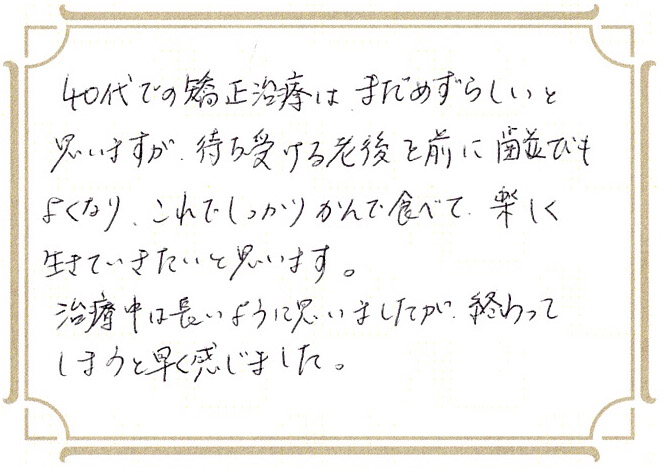 40代での矯正治療は、まだめずらしいと
思いますが、待ち受ける老後を前に歯並びも
よくなり、これでしっかりかんで食べて、楽しく
生きていきたいと思います。
治療中は長いように思いましたが、終わって
しまうと早く感じました。